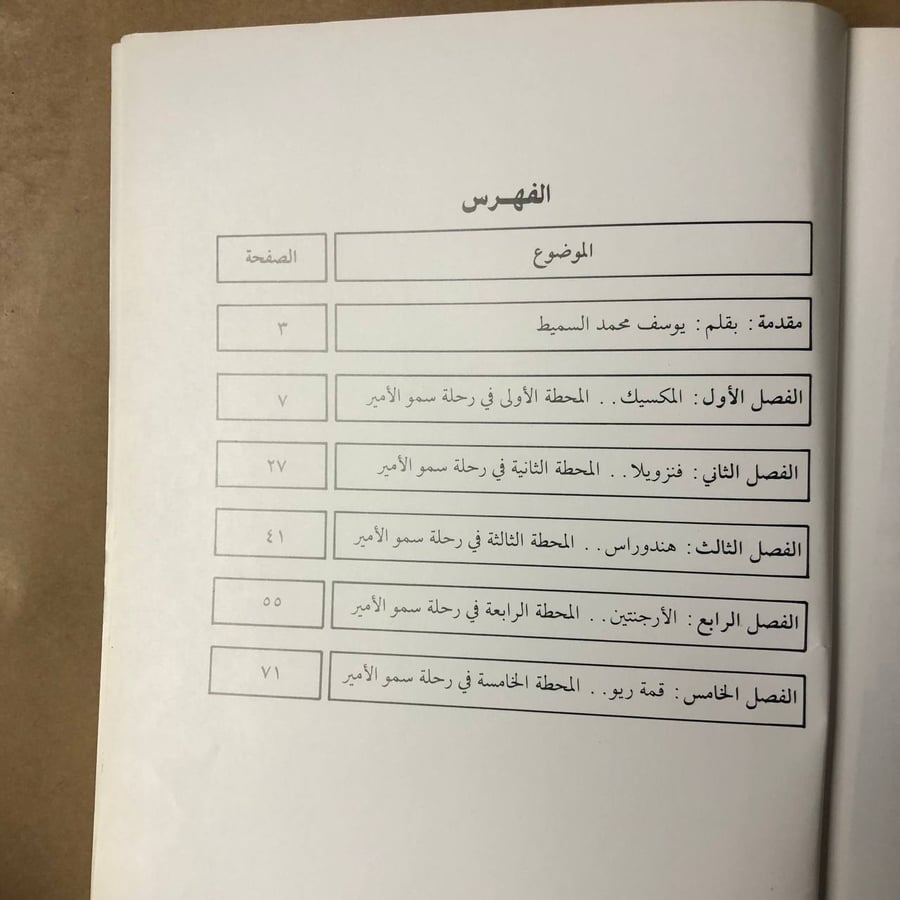 الفهـرس
الموضوع الصفحة
مقدمة : بقلم : يوسف محمد السميط ٣
الفصل الأول : المكسيك . . المحطة الأولى في رحلة سمو الأمير ٧
الفصل الثاني : فنزويلا . . المحطة الثانية في رحلة سمو الأمير ٢٧
الفصل الثالث : هندوراس . . المحطة الثالثة في رحلة سمو الأمير ٤١
الفصل الرابع : الأرجنتين . . المحطة الرابعة في رحلة سمو الأمير ٥٥
الفصل الخامس : قمة ريو . . المحطة الخامسة في رحلة سمو الأمير ٧١